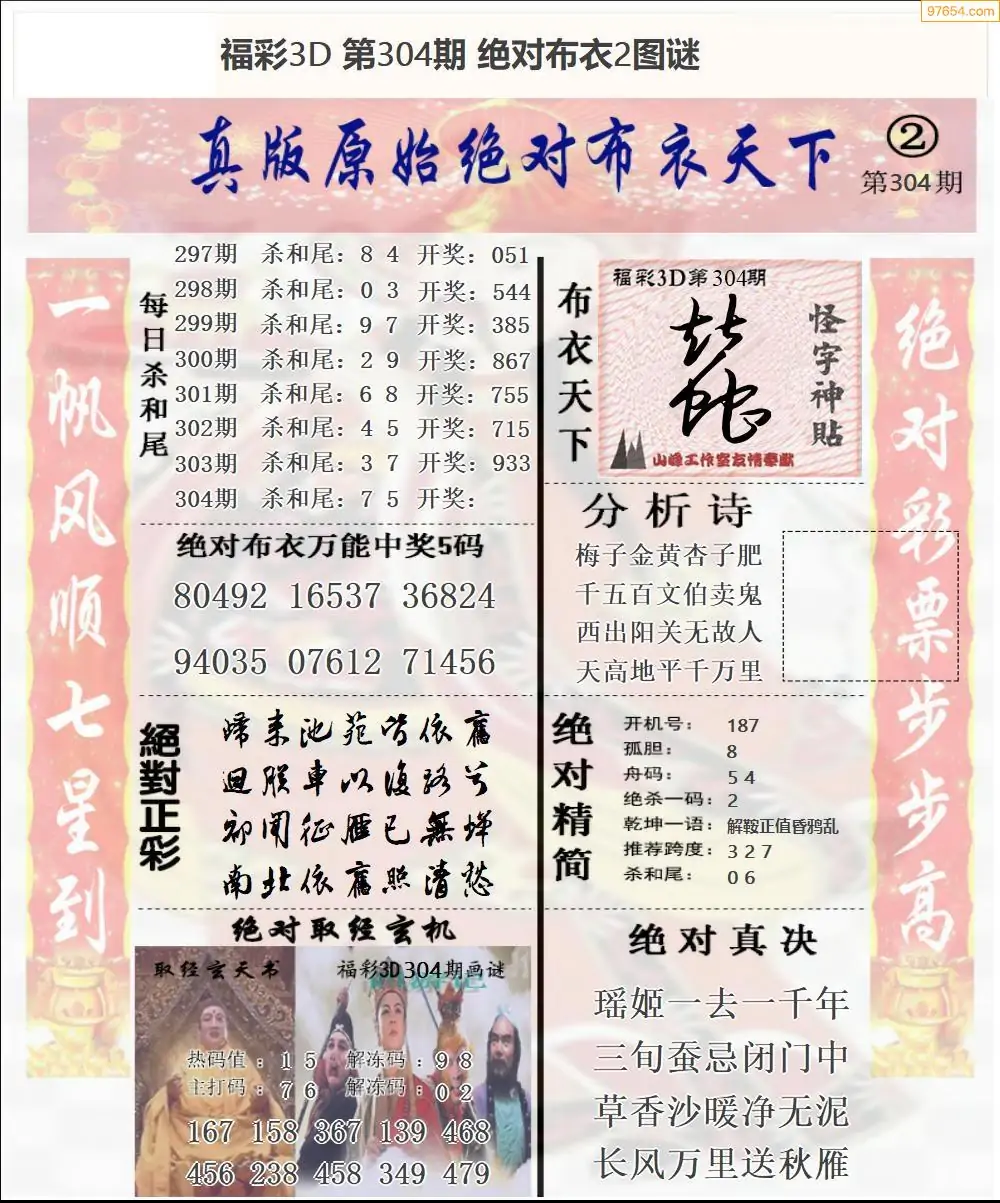 97654.com
福彩3D 第304期 绝对布衣2图谜
真版原始绝对布衣天下
②
第304期
一帆风顺七星到
每日杀和尾
297期 杀和尾：8 4 开奖：051
298期 杀和尾：0 3 开奖：544
299期 杀和尾：9 7 开奖：385
300期 杀和尾：2 9 开奖：867
301期 杀和尾：6 8 开奖：755
302期 杀和尾：4 5 开奖：715
303期 杀和尾：3 7 开奖：933
304期 杀和尾：7 5 开奖：
绝对布衣万能中奖5码
80492 16537 36824
94035 07612 71456
絕對正彩
歸来池苑皆依舊
迴朕車以復路兮
初聞征雁已無蝉
南北依舊照清愁
绝对取经玄机
取经玄天书
福彩3D304期画谜
热码值：1 5 解冻码：9 8
主打码：7 6 解冻码：0 2
167 158 367 139 468
456 238 458 349 479
布衣天下
福彩3D第304期
怪字神貼
山峰工作室友情奉献
分析诗
梅子金黄杏子肥
千五百文伯卖鬼
西出阳关无故人
天高地平千万里
绝对精简
开机号： 187
孤胆： 8
舟码： 5 4
绝杀一码：2
乾坤一语：解鞍正值昏鸦乱
推荐跨度：3 2 7
杀和尾： 0 6
绝对真决
瑶姬一去一千年
三旬蚕忌闭门中
草香沙暖净无泥
长风万里送秋雁
绝对彩票步步高